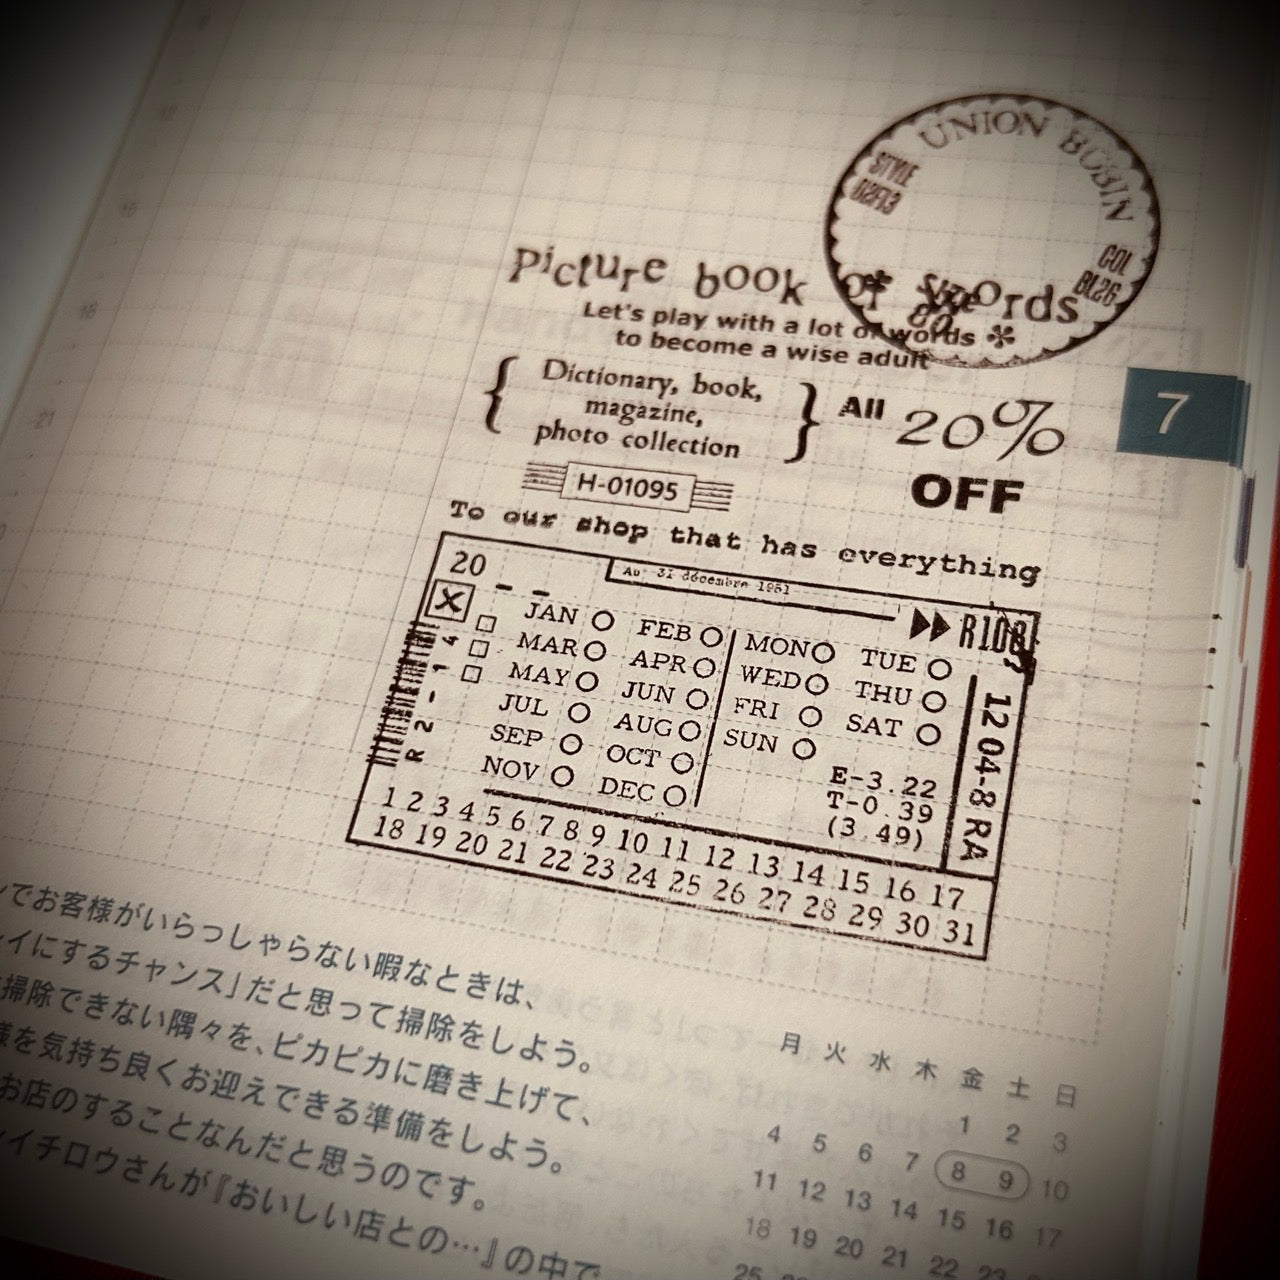 UNION BOBIN
STYLE
COL
BL26
Picture book of words
Let's play with a lot of words ✻
to become a wise adult
{ Dictionary, book,
magazine,
photo collection }
All 20%
OFF
7
H-01095
To our shop that has everything
20 _ _
Au 31 décembre 1951
R108
X
JAN ○ FEB ○ MON ○ TUE ○
MAR ○ APR ○ WED ○ THU ○
MAY ○ JUN ○ FRI ○ SAT ○
JUL ○ AUG ○ SUN ○
SEP ○ OCT ○
NOV ○ DEC ○
E-3.22
T-0.39
(3.49)
R2-14
12 04-8 RA
1 2 3 4 5 6 7 8 9 10 11 12 13 14 15 16 17
18 19 20 21 22 23 24 25 26 27 28 29 30 31
でお客様がいらっしゃらない暇なときは、
イにするチャンス」だと思って掃除をしよう。
掃除できない隅々を、ピカピカに磨き上げて、
様を気持ち良くお迎えできる準備をしよう。
お店のすることなんだと思うのです。
イチロウさんが『おいしい店との…』の中で
月 火 水 木 金 土 日
1 2 3
4 5 6 7 8 9 10
11 12 13 14 15 16 17
18 19 20 21 22 23
25